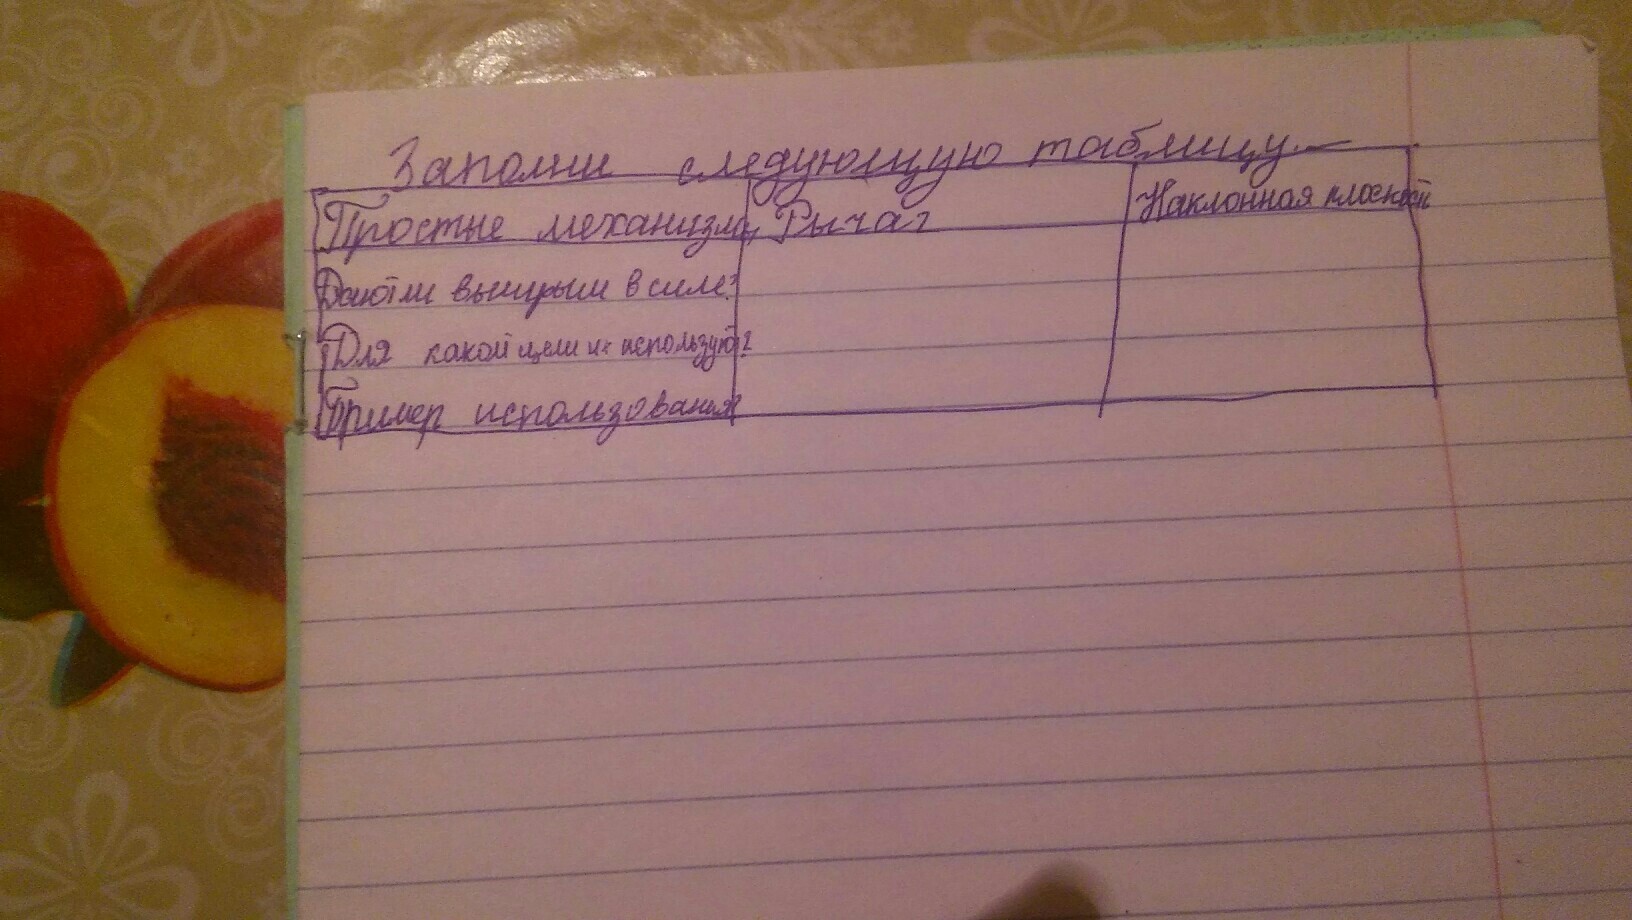 Заполни следующую таблицу.
Простые механизмы Рычаг Наклонная плоскость
Дают ли выигрыш в силе?
Для какой цели их используют?
Пример использования